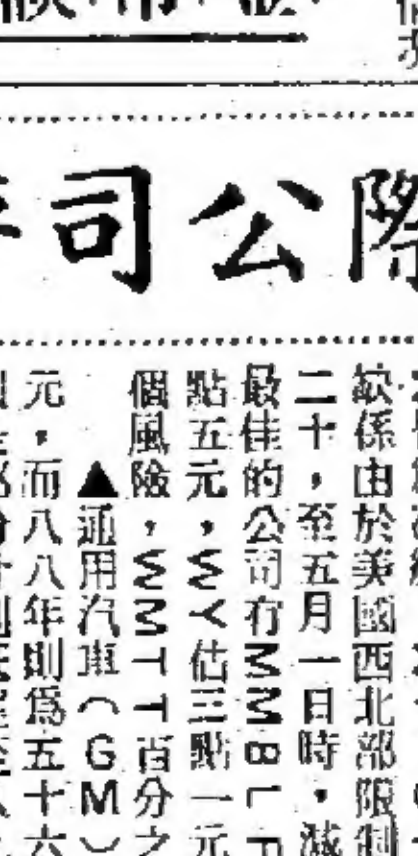 際公司
欵係由於美國西北部限制
二十，至五月一日時，減
最佳的公司有MMBLF
點五元，WY估三點一元
個風險，WMTT百分之
▲通用汽車（GM）
元，而八八年則爲五十六